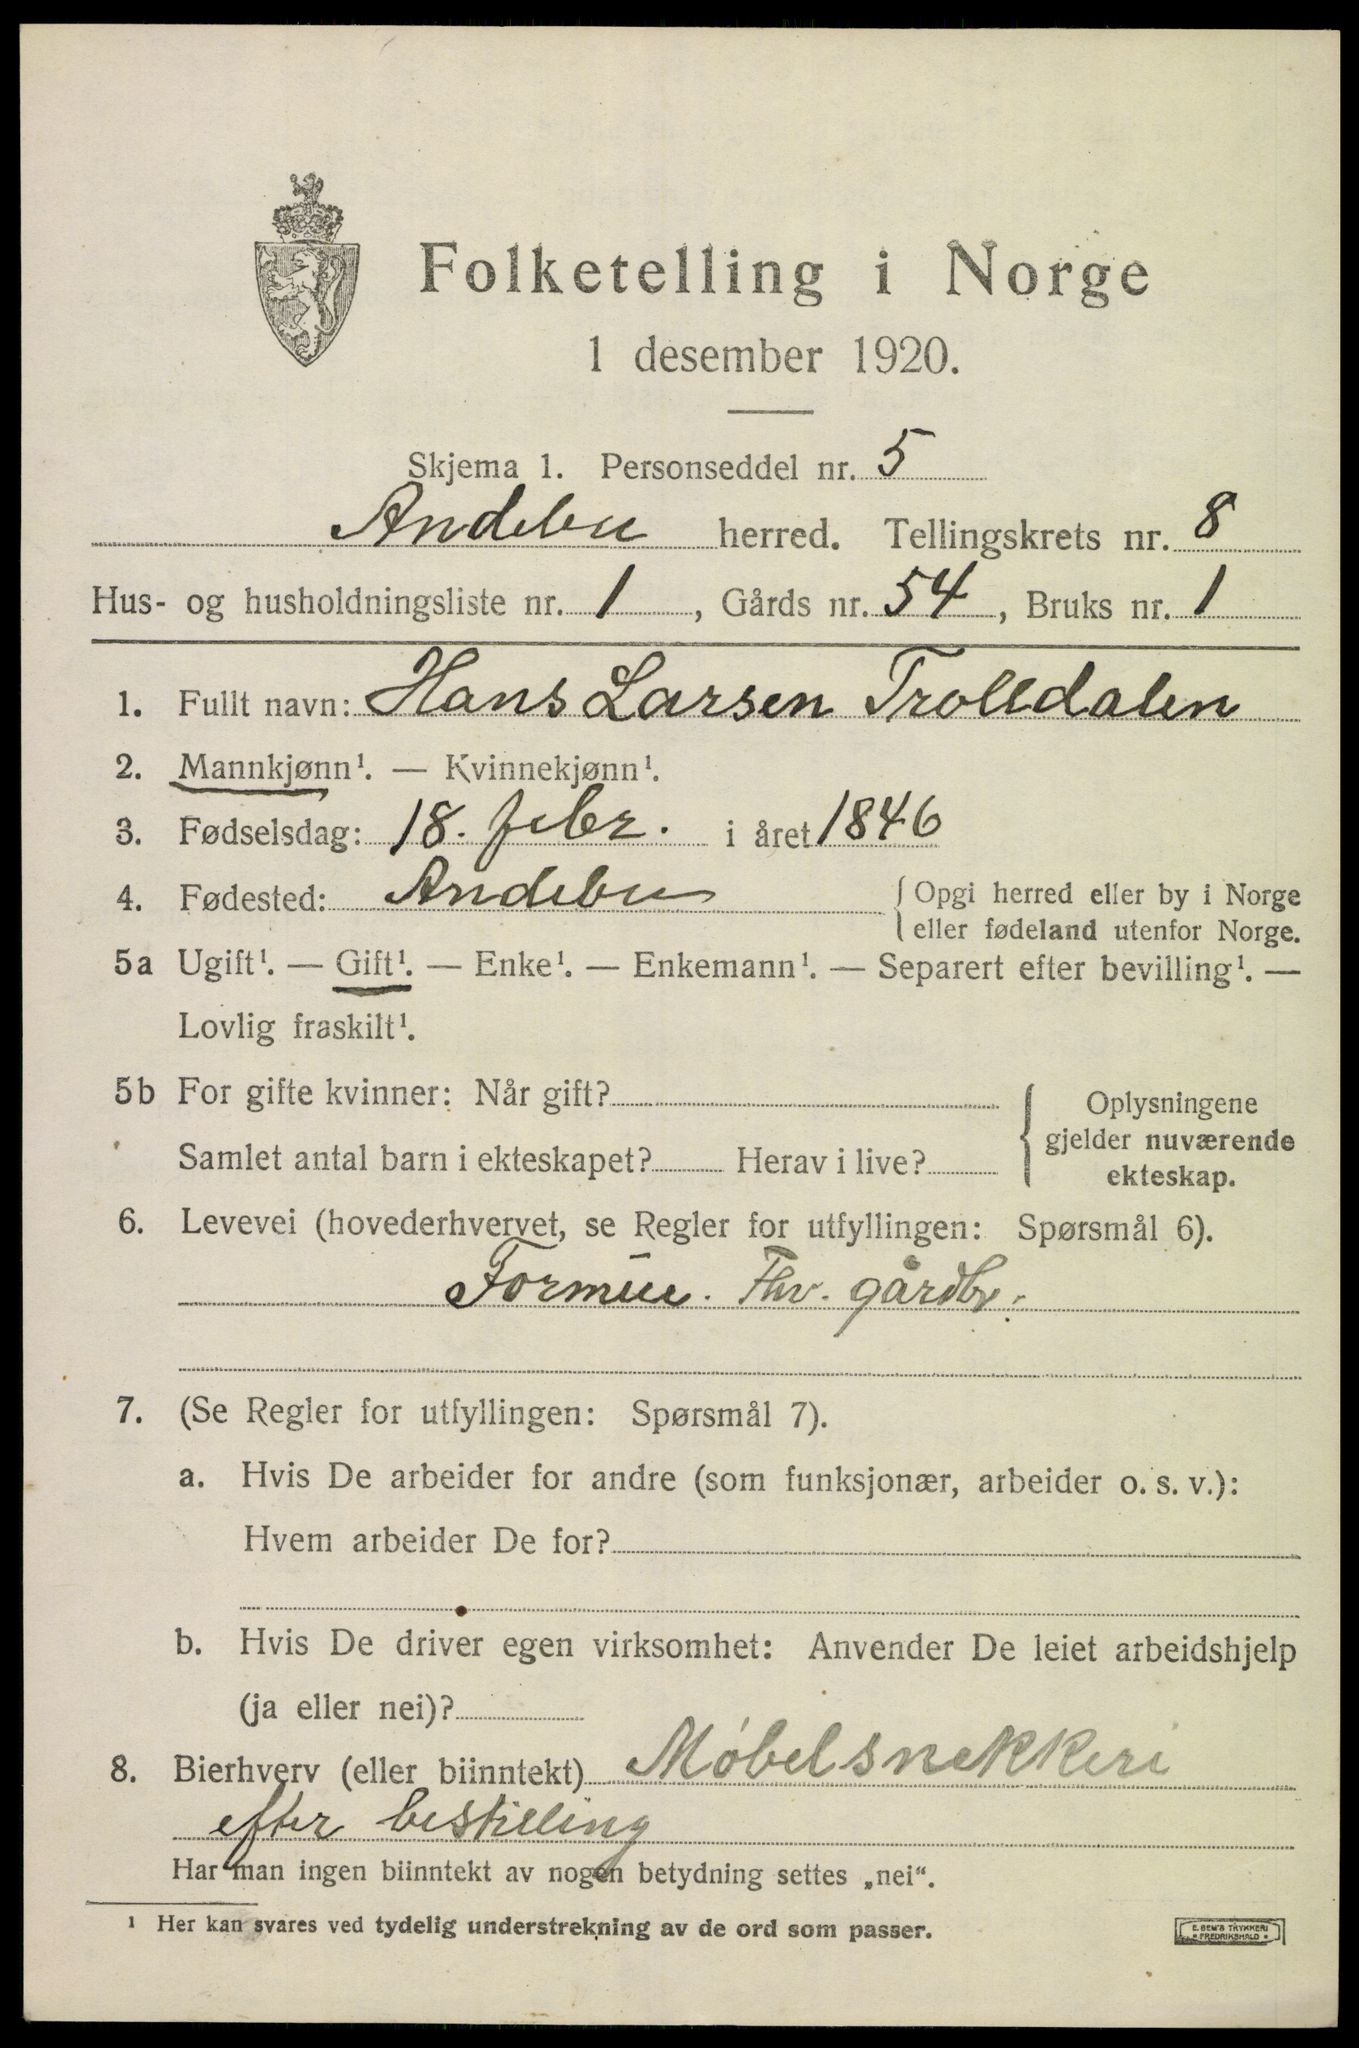 Folketelling i Norge
1 desember 1920.
Skjema 1. Personseddel nr. 5
Andebu herred. Tellingskrets nr. 8
Hus- og husholdningsliste nr. 1, Gårds nr. 54, Bruks nr. 1
1. Fullt navn: Hans Larsen Trolldalen
2. Mannkjønn¹. — Kvinnekjønn¹.
3. Fødselsdag: 18. febr. i året 1846
4. Fødested: Andebu { Opgi herred eller by i Norge
eller fødeland utenfor Norge.
5a Ugift¹. — Gift¹. — Enke¹. — Enkemann¹. — Separert efter bevilling¹. —
Lovlig fraskilt¹.
5b For gifte kvinner: Når gift?
Samlet antal barn i ekteskapet? Herav i live?
{ Oplysningene
gjelder nuværende
ekteskap.
6. Levevei (hovederhvervet, se Regler for utfyllingen: Spørsmål 6).
Formue. Fhv. gårdbr.
7. (Se Regler for utfyllingen: Spørsmål 7).
a. Hvis De arbeider for andre (som funksjonær, arbeider o. s. v.):
Hvem arbeider De for?
b. Hvis De driver egen virksomhet: Anvender De leiet arbeidshjelp
(ja eller nei)?
8. Bierhverv (eller biinntekt) Møbelsnekkeri
efter bestilling
Har man ingen biinntekt av nogen betydning settes „nei“.
¹ Her kan svares ved tydelig understrekning av de ord som passer.
E. SEM'S TRYKKERI
FREDRIKSHALD